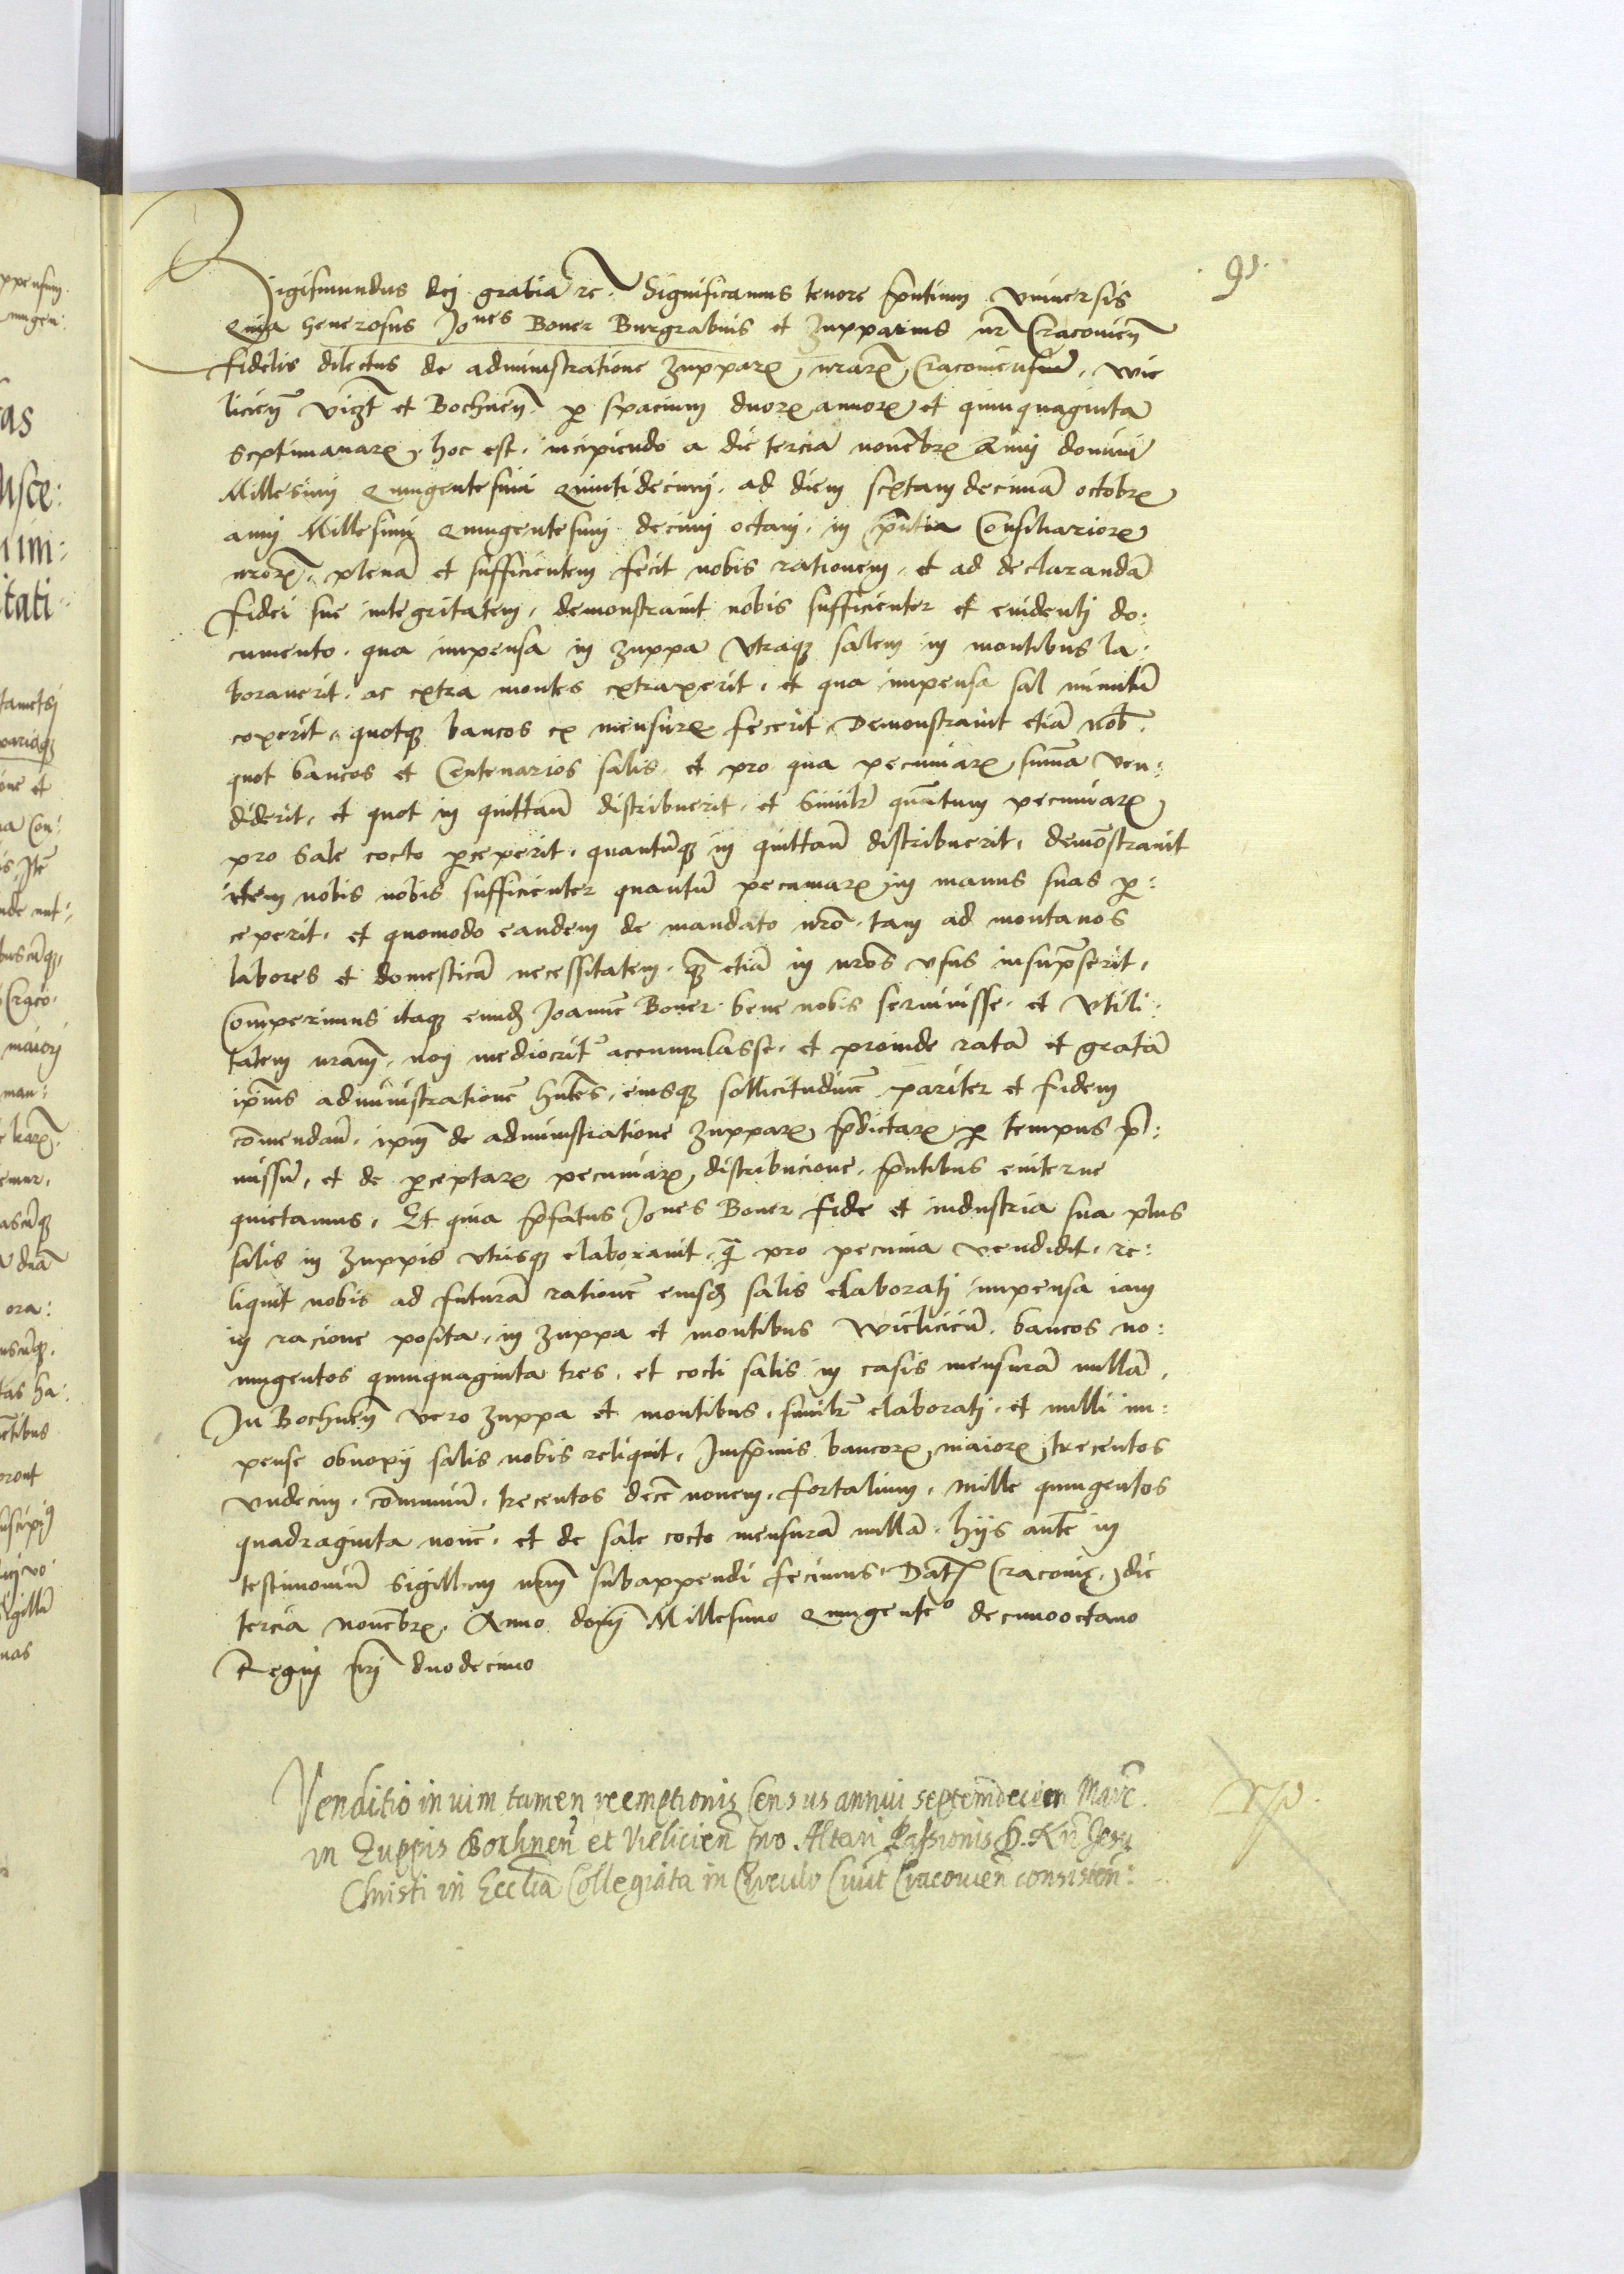 91.
Sigismundus dej gratia rc̃. Significamus tenore p̃ntium vniuersis
Quia generosus Joh̃nes Boner Burgrabius et zupparius nr̃ Cracouieñ
fidelis dilectus de administratione zupparꝝ nrarꝝ Cracouiensiũ, Wie
licieñ vizt̃ et Bochneñ. ꝑ spacium duorꝝ annorꝝ et quinquaginta
septimanarꝝ, hoc est, incipiendo a die tercia nouẽbrꝭ Anni domini
Millesimi Quingentesimi Quintidecimi, ad diem sextam decimã octobrꝭ
anni Millesimi Quingentesimi decimi octaui, in p̃ntia Consiliariorꝝ
nrorꝝ, plenã et sufficientem fecit nobis rationem, et ad declarandã
fidei sue integritatem, demonstrauit nobis sufficienter et euidentj do:
cumento, qua impensa in zuppa vtraqꝫ salem in montibus la:
borauerit, ac extra montes extraxerit, et qua impensa sal minutũ
coxerit, quotqꝫ bancos ex mensurꝭ fecerit. Demonstrauit etiã nob̃.
quot bancos et Centenarios salis, et pro qua pecuniarꝝ sum̃a ven:
diderit, et quot in quittañ distribuerit, et Similr̃ quãtum pecuniarꝝ
pro Sale cocto ꝑceperit, quantũqꝫ in quittañ distribuerit, demõstrauit
item nobis nobis sufficienter quantũ pecuniarꝝ in manus suas ꝑ:
ceperit, et quomodo eandem de mandato nrõ tam ad montanos
labores et domesticã necessitatem, qꝫ̃ etiã in nros̃ vsus insũpserit,
Comperimus itaqꝫ eundꝫ Joannẽ Boner bene nobis seruiuisse, et vtili:
tatem nram̃, non mediocrit̃ accumulasse, et proinde ratã et gratã
ip̃ius administrationẽ hñtes, eiusqꝫ sollicitudinẽ pariter et fidem
cõmendañ, ipm̃ de administratione zupparꝝ p̃dictarꝝ ꝑ tempus p̃:
missũ, et de ꝑceptarꝝ pecuniarꝝ distribucione, p̃ntibus euiterne
quietamus, Et quia p̃fatus Joh̃nes Boner fide et industria sua plus
salis in zuppis vtrisqꝫ elaborauit, q̃ pro pecunia vendidit, re:
liquit nobis ad futurã rationẽ eiusdꝫ salis elaboratj impensa iam
in racione posita, in zuppa et montibus Wielicieñ, bancos no:
ningentos quinquaginta tres, et cocti salis in casis mensurã nullã,
In Bochneñ vero zuppa et montibus, similr̃ elaboratj, et nulli im:
pense obnoxij salis nobis reliquit, Inprimis bancorꝝ maiorꝝ trecentos
vndecim, cõmuniũ, trecentos decẽ nouem, fortalium, mille quingentos
quadraginta nouẽ, et de sale cocto mensurã nullã. hijs autẽ in
testimoniũ Sigillum nrm̃ subappendi fecimus. Datꝭ Cracouie, die
tercia nouẽbrꝭ, Anno domj̃ Millesimo Quingenteº decimooctauo
Regnj nrj̃ duodecimo
Venditio in uim tamen reemptionis Census annui septemdecim Marc̃.
in Zuppis Bochneñ et Vielicieñ pro Altari Passionis D. Nr̃i Jesu
Christi in Eccl̃ia Collegiata in Circulo Ciuit̃ Cracouieñ consisteñ: